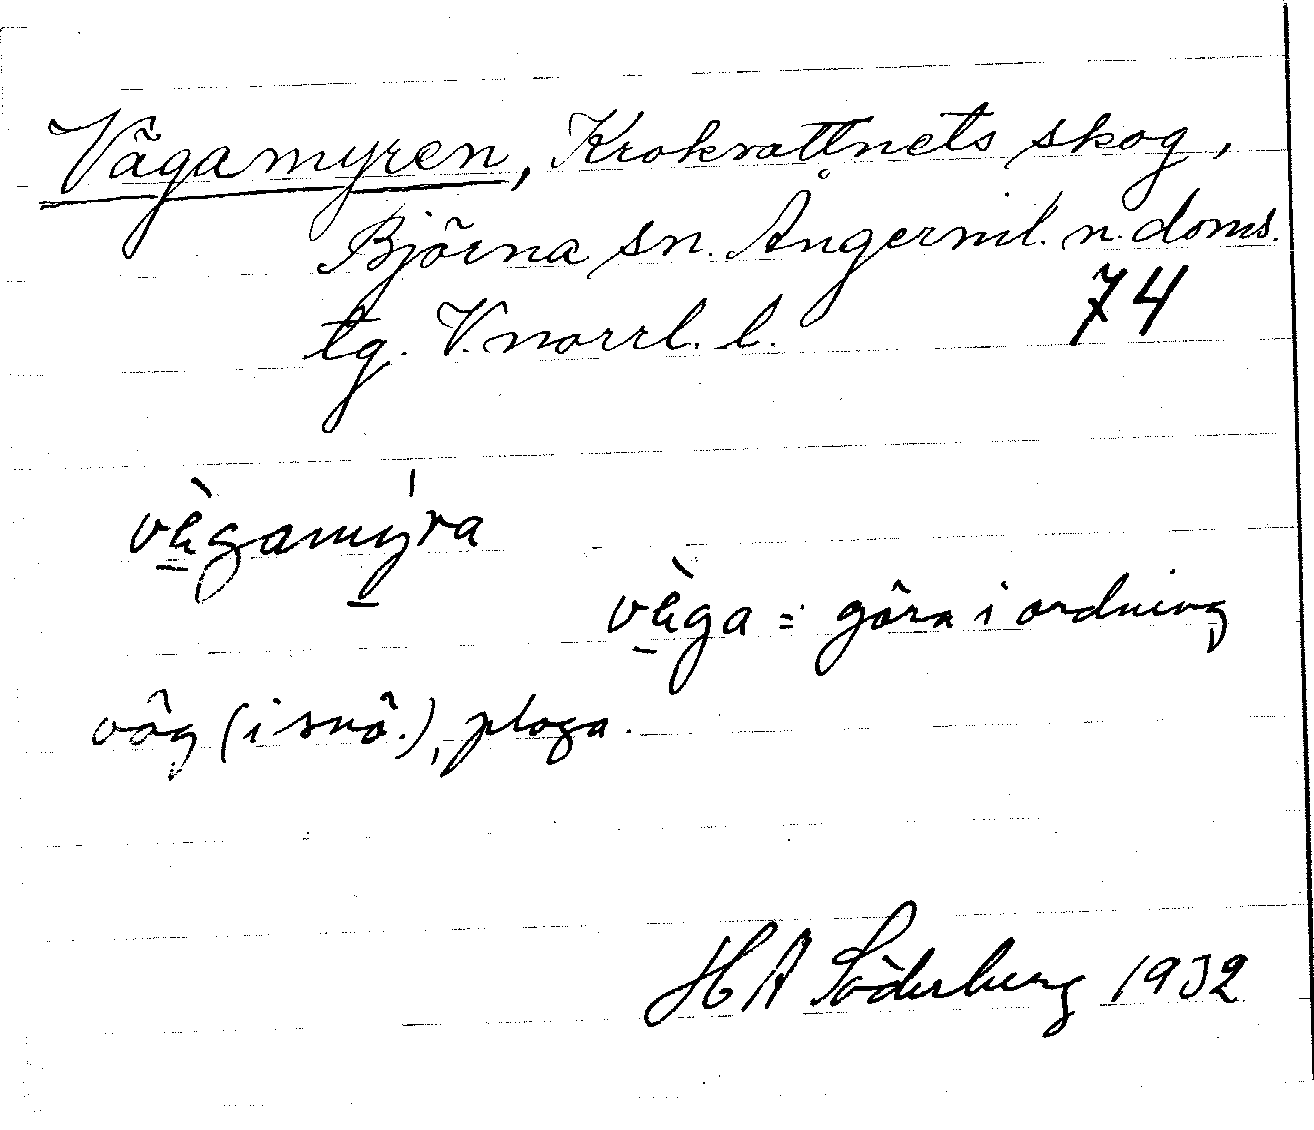 Vägamyren, Krokvattnets skog,
Björna sn. Ångerml. n. doms.
tg. V.norrl. l. 74
vägamyra
väga = göra i ordning
väg (i snö.), ploga.
H A Söderberg 1932